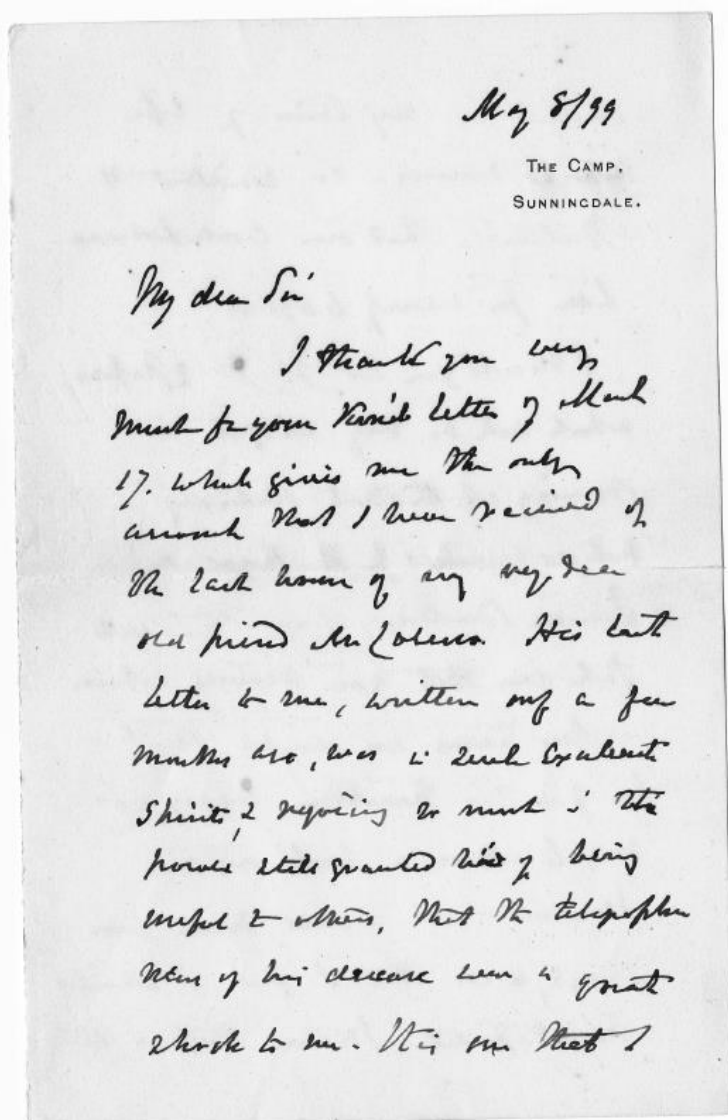 May 8/99
THE CAMP,
SUNNINGDALE.
My dear Sir
I thank you very
much for your kind letter of March
17. which gives me the only
account that I have received of
the last hours of my very dear
old friend Mr
His last
letter to me, written only a few
months ago, was in such excellent
spirits, & rejoicing so much in the
power still granted him of being
useful to others, that the
news of his decease was a great
shock to me. It is one that I